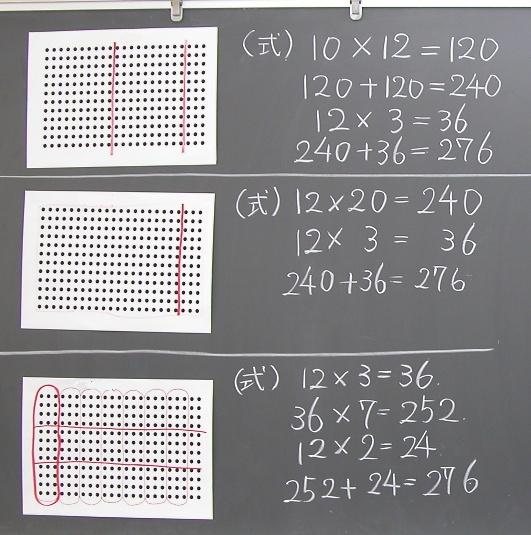 (式) 10×12=120
120+120=240
12×3=36
240+36=276
(式) 12×20=240
12×3=36
240+36=276
(式) 12×3=36.
36×7=252.
12×2=24
252+24=276